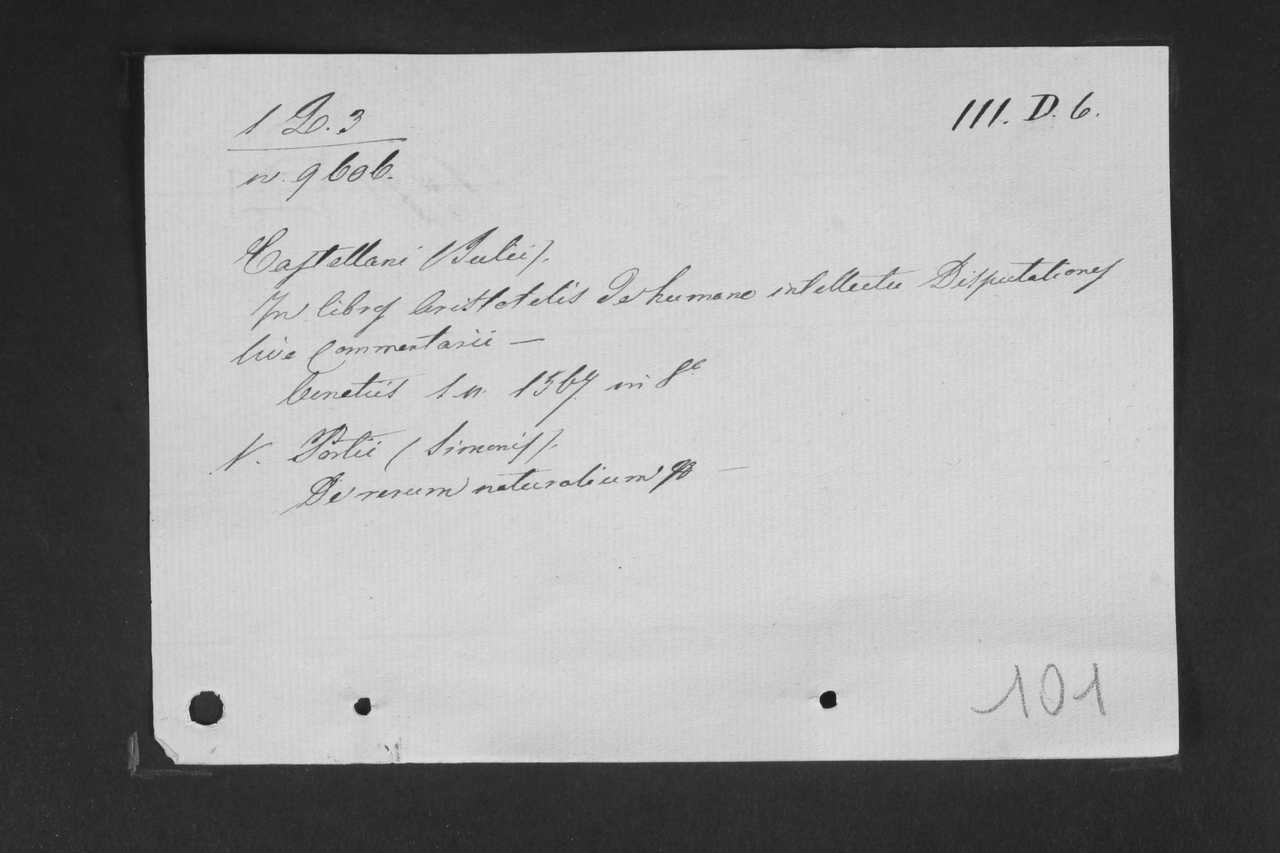 1 D. 3
III. D. 6.
n. 9606.
Castellani (Julii).
In libros Aristotelis De humano intellectu Disputationes
sive Commentarii —
Venetiis s. n. 1567 in 8°
V. Portii (Simonis).
De rerum naturalium —
101